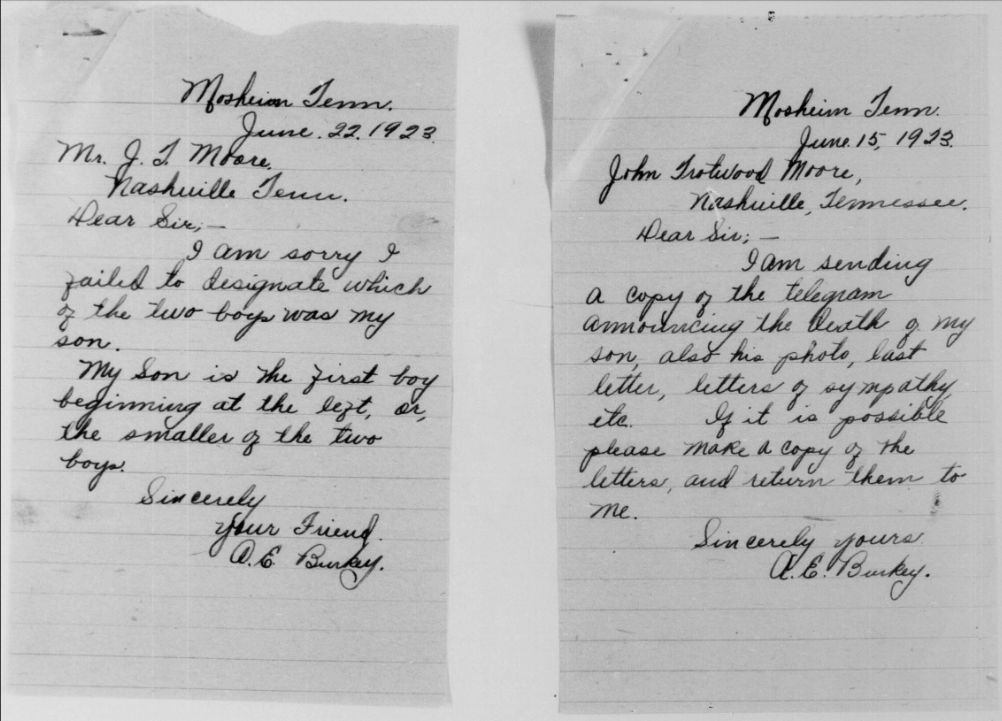 Mosheim Tenn.
June. 22. 1923.
Mr. J. T. Moore.
Nashville Tenn.
Dear Sir; —
I am sorry I
failed to designate which
of the two boys was my
son.
My Son is the first boy
beginning at the left, or,
the smaller of the two
boys.
Sincerely
Your Friend.
A. E. Burkey.
Mosheim Tenn.
June. 15, 1923.
John Trotwood Moore,
Nashville, Tennessee.
Dear Sir; —
I am sending
a copy of the telegram
announcing the death of my
son, also his photo, last
letter, letters of sympathy,
etc. If it is possible
please make a copy of the
letters, and return them to
me.
Sincerely yours.
A. E. Burkey.